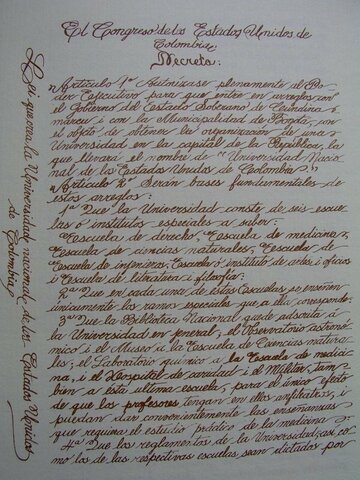 El Congreso de los Estados Unidos de
Colombia
Decreta:
Artículo 1º Autorízase plenamente al Po-
der Ejecutivo para que entre en arreglos con
el Gobierno del Estado Soberano de Cundina-
marca i con la Municipalidad de Bogotá, con
el objeto de obtener la organización de una
Universidad en la capital de la República, la
que llevará el nombre de "Universidad Nacio-
nal de los Estados Unidos de Colombia."
Artículo 2º Serán bases fundamentales de
estos arreglos:
1ª Que la Universidad conste de seis escue-
las o institutos especiales a saber:
Escuela de derecho, Escuela de medicina,
Escuela de ciencias naturales, Escuela de
Escuela de injenieros, Escuela o instituto de artes i oficios
i Escuela de literatura i filosofía:
2ª Que en cada una de estas Escuelas se enseñen
únicamente los ramos especiales que a ella corresponde:
3ª Que la Biblioteca Nacional quede adscrita a
la Universidad en jeneral; el Observatorio astronó-
mico i el Museo a la Escuela de Ciencias natura-
les; el Laboratorio químico a la Escuela de medici-
na, i el Hospital de caridad i el Militar, tam-
bien a esta última escuela, para el único efecto
de que los profesores tengan en ellos anfiteatros, i
puedan dar convenientemente las enseñanzas
que requiera el estudio práctico de la medicina
4ª Que los reglamentos de la Universidad, así co-
mo los de las respectivas escuelas, sean dictados por
Lei que crea la Universidad nacional de los Estados Unidos
de Colombia